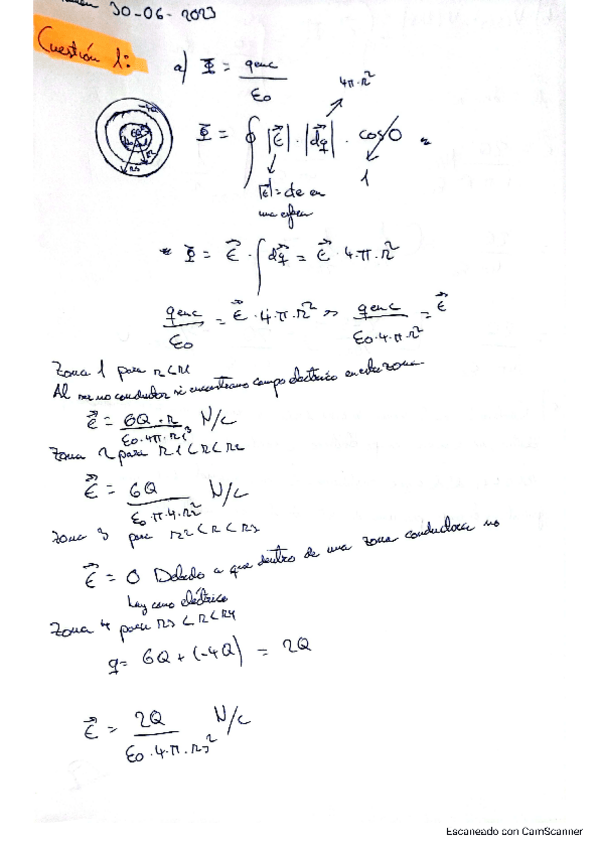 30-06-2023
Cuestión 1:
a) Φ = qenc / εo
4π·r²
-4Q
6Q
R3
Φ = ∮ |E|·|dq|·cos 0 =
1
|E| = cte en
una esfera
* Φ = E · ∫ dq = E · 4·π·r²
qenc / εo = E·4·π·r² => qenc / εo·4·π·r² = E
Zona 1 para r<R1
Al ser no conductor si encontramos campo electrico en esta zona
E = 6Q·r / εo·4π·R1³ N/C
Zona 2 para R1<R<R2
E = 6Q / εo·π·4·r² N/C
Zona 3 para R2<R<R3
E = 0 Debido a que dentro de una zona conductora no
hay camo eléctrico
Zona 4 para R3<R<R4
q= 6Q + (-4Q) = 2Q
E = 2Q / εo·4·π·r² N/C
Escaneado con CamScanner